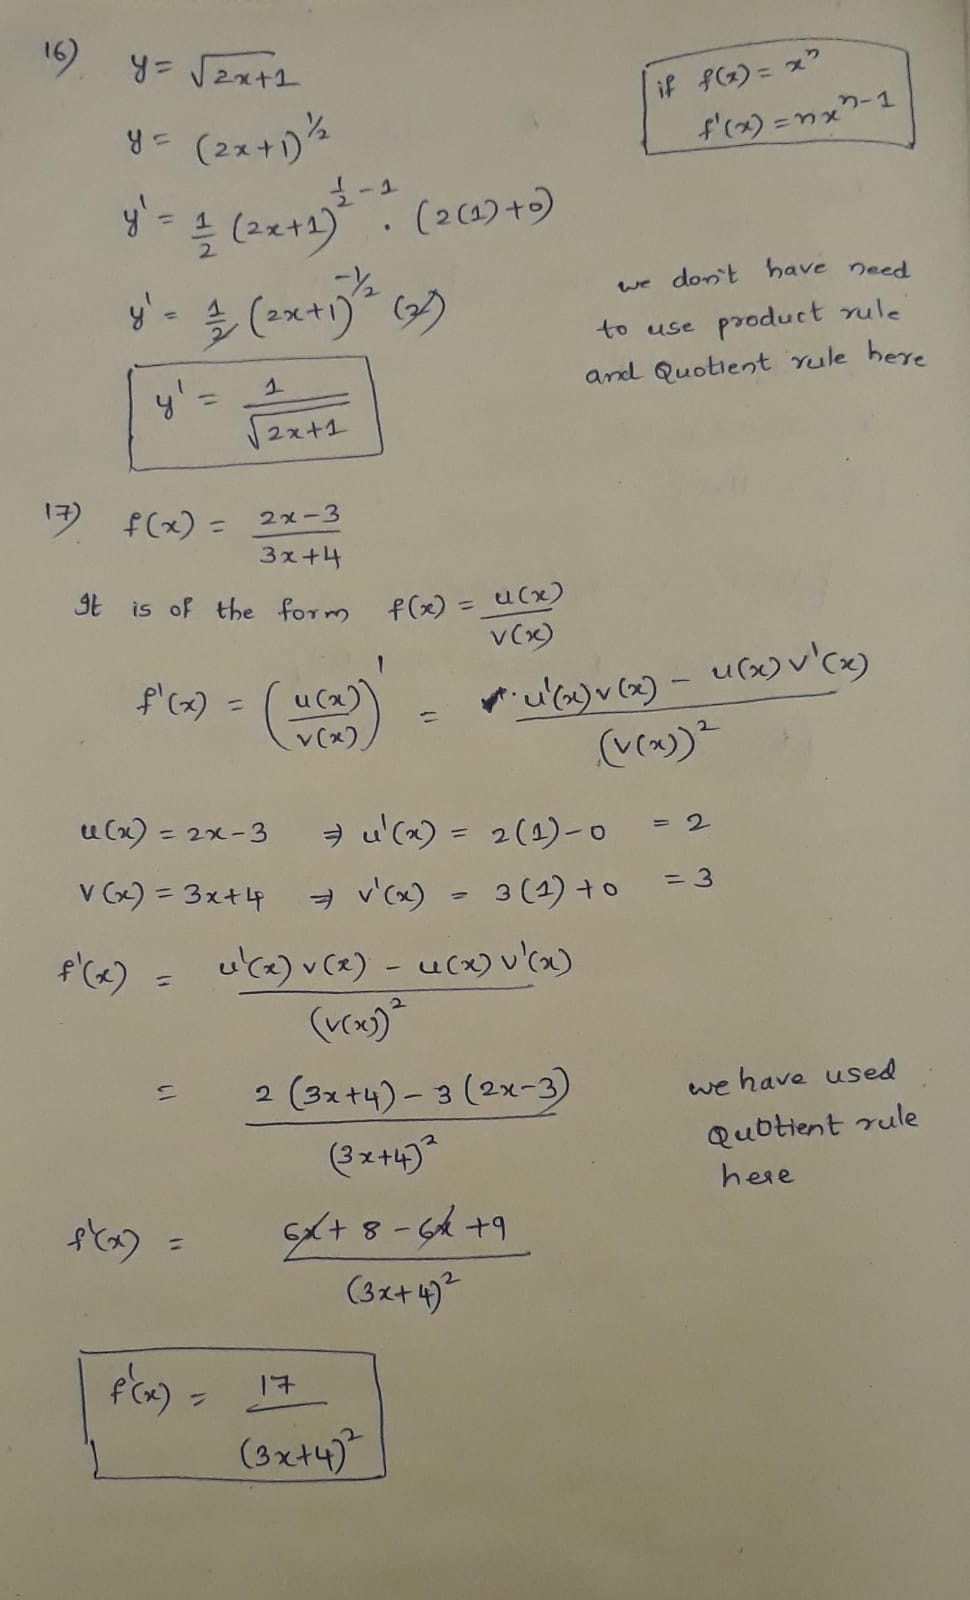 16) y = √2x+1
if f(x) = xⁿ
y = (2x+1)^½
f'(x) = nxⁿ⁻¹
y' = 1/2 (2x+1)^(1/2 - 1) . (2(1)+0)
y' = 1/2 (2x+1)^(-1/2) (2)
we don't have need
to use product rule
and Quotient rule here
y' = 1/√2x+1
17) f(x) = 2x-3 / 3x+4
It is of the form f(x) = u(x)/v(x)
f'(x) = (u(x)/v(x))' = u'(x)v(x) - u(x)v'(x) / (v(x))²
u(x) = 2x-3 ⇒ u'(x) = 2(1)-0 = 2
v(x) = 3x+4 ⇒ v'(x) = 3(1)+0 = 3
f'(x) = u'(x)v(x) - u(x)v'(x) / (v(x))²
= 2(3x+4) - 3(2x-3) / (3x+4)²
we have used
Quotient rule
here
f'(x) = 6x+8-6x+9 / (3x+4)²
f'(x) = 17 / (3x+4)²